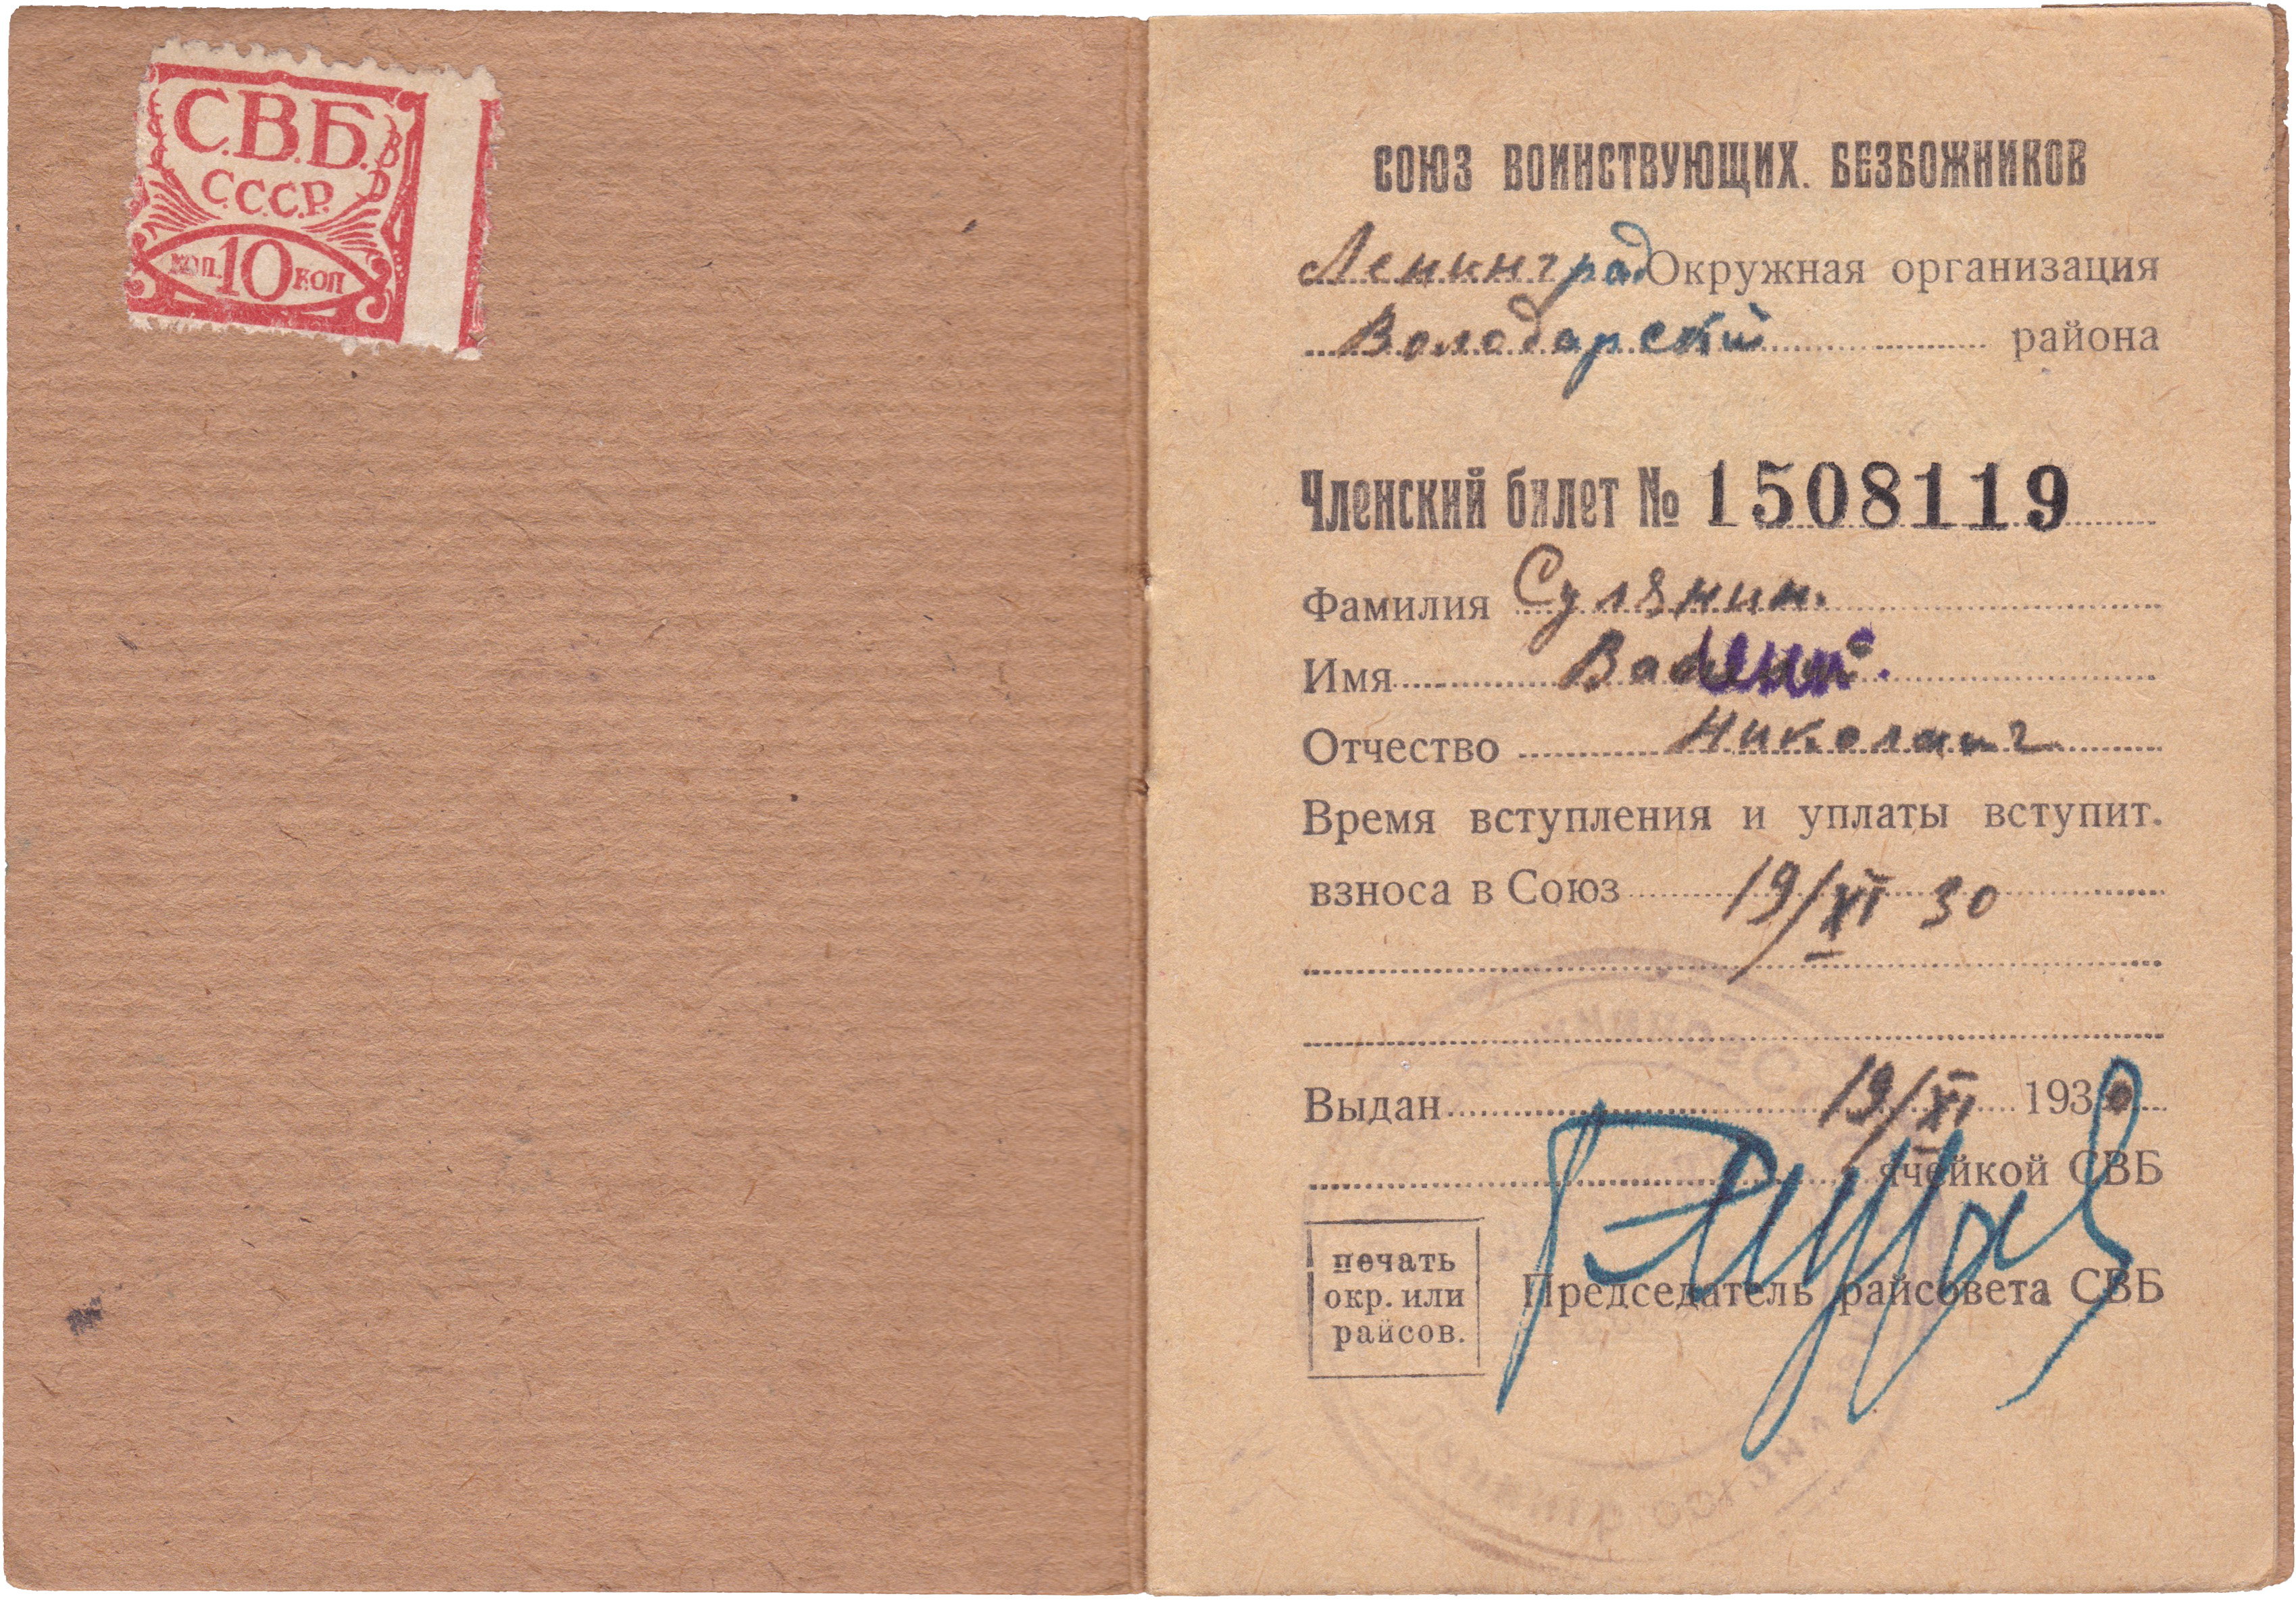 С.В.Б.
С.С.С.Р.
КОП. 10 КОП
СОЮЗ ВОИНСТВУЮЩИХ. БЕЗБОЖНИКОВ
Ленинград Окружная организация
Володарский района
Членский билет № 1508119
Фамилия Сулянин.
Имя
Отчество
Время вступления и уплаты вступит.
взноса в Союз 19/XI 30
Выдан 19/XI 1930
ячейкой СВБ
печать
окр. или
райсов.
Председатель райсовета СВБ